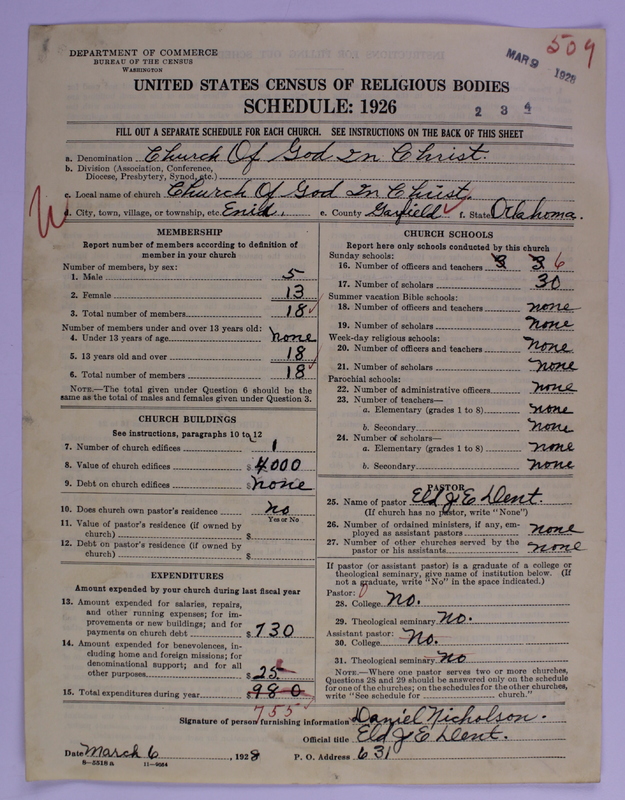 509
MAR 9 1928
DEPARTMENT OF COMMERCE
BUREAU OF THE CENSUS
WASHINGTON
UNITED STATES CENSUS OF RELIGIOUS BODIES
SCHEDULE: 1926
2 3 4
FILL OUT A SEPARATE SCHEDULE FOR EACH CHURCH. SEE INSTRUCTIONS ON THE BACK OF THIS SHEET
a. Denomination Church Of God In Christ.
b. Division (Association, Conference,
Diocese, Presbytery, Synod, etc.)
c. Local name of church Church Of God In Christ.
d. City, town, village, or township, etc. Enid. e. County Garfield f. State Oklahoma.
MEMBERSHIP
Report number of members according to definition of
member in your church
Number of members, by sex:
1. Male 5
2. Female 13
3. Total number of members 18
Number of members under and over 13 years old:
4. Under 13 years of age none
5. 13 years old and over 18
6. Total number of members 18
NOTE.—The total given under Question 6 should be the
same as the total of males and females given under Question 3.
CHURCH BUILDINGS
See instructions, paragraphs 10 to 12
7. Number of church edifices 1
8. Value of church edifices $ 4000
9. Debt on church edifices $ none
10. Does church own pastor's residence no
Yes or No
11. Value of pastor's residence (if owned by
church) $
12. Debt on pastor's residence (if owned by
church) $
EXPENDITURES
Amount expended by your church during last fiscal year
13. Amount expended for salaries, repairs,
and other running expenses; for im-
provements or new buildings; and for
payments on church debt $ 730
14. Amount expended for benevolences, in-
cluding home and foreign missions; for
denominational support; and for all
other purposes $ 25
15. Total expenditures during year $ 980
755
CHURCH SCHOOLS
Report here only schools conducted by this church
Sunday schools:
16. Number of officers and teachers 3 3 6
17. Number of scholars 30
Summer vacation Bible schools:
18. Number of officers and teachers none
19. Number of scholars none
Week-day religious schools:
20. Number of officers and teachers none
21. Number of scholars none
Parochial schools:
22. Number of administrative officers none
23. Number of teachers—
a. Elementary (grades 1 to 8) none
b. Secondary none
24. Number of scholars—
a. Elementary (grades 1 to 8) none
b. Secondary none
PASTOR
25. Name of pastor Eld J E Dent.
(If church has no pastor, write "None")
26. Number of ordained ministers, if any, em-
ployed as assistant pastors none
27. Number of other churches served by the
pastor or his assistants none
If pastor (or assistant pastor) is a graduate of a college or
theological seminary, give name of institution below. (If
not a graduate, write "No" in the space indicated.)
Pastor:
28. College No.
29. Theological seminary No.
Assistant pastor:
30. College No.
31. Theological seminary No
NOTE.—Where one pastor serves two or more churches,
Questions 28 and 29 should be answered only on the schedule
for one of the churches; on the schedules for the other churches,
write "See schedule for church."
Signature of person furnishing information Daniel Nicholson.
Official title Eld J E Dent.
Date March 6, 1928 P. O. Address 631
8—5518a 11—9064